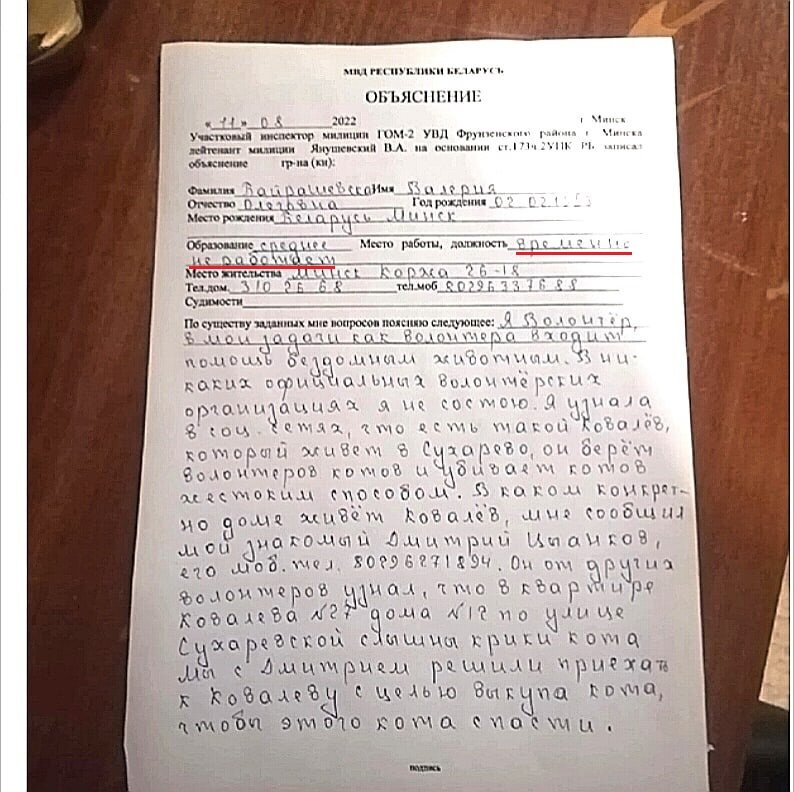 МВД РЕСПУБЛИКИ БЕЛАРУСЬ
ОБЪЯСНЕНИЕ
«11» 08 2022 г. Минск
Участковый инспектор милиции ГОМ-2 УВД Фрунзенского района г. Минска
лейтенант милиции Янушевский В.А. на основании ст.173ч.2УПК РБ записал
объяснение гр-на (ки):
Фамилия Имя Валерия
Отчество Олеговна Год рождения
Место рождения Беларусь Минск
Образование среднее Место работы, должность временно
не работает
Место жительства Минск Коржа 26-18
Тел.дом. 310 26 68 тел.моб 80296337688
Судимости
По существу заданных мне вопросов поясняю следующее: Я Волонтёр,
в мои задачи как волонтера входит
помощь бездомным животным. В ни-
каких официальных волонтёрских
организациях я не состою. Я узнала
в соц. сетях, что есть такой Ковалёв,
который живет в Сухарево, он берёт
волонтеров котов и убивает котов
жестоким способом. В каком конкрет-
но доме живёт Ковалёв, мне сообщил
мой знакомый Дмитрий Цыанков,
его моб. тел. 80296271894. Он от других
волонтеров узнал, что в квартире
Ковалева №27 дома №12 по улице
Сухаревской слышны крики кота
Мы с Дмитрием решили приехать
к Ковалеву с целью выкупа кота,
чтобы этого кота спасти.
подпись